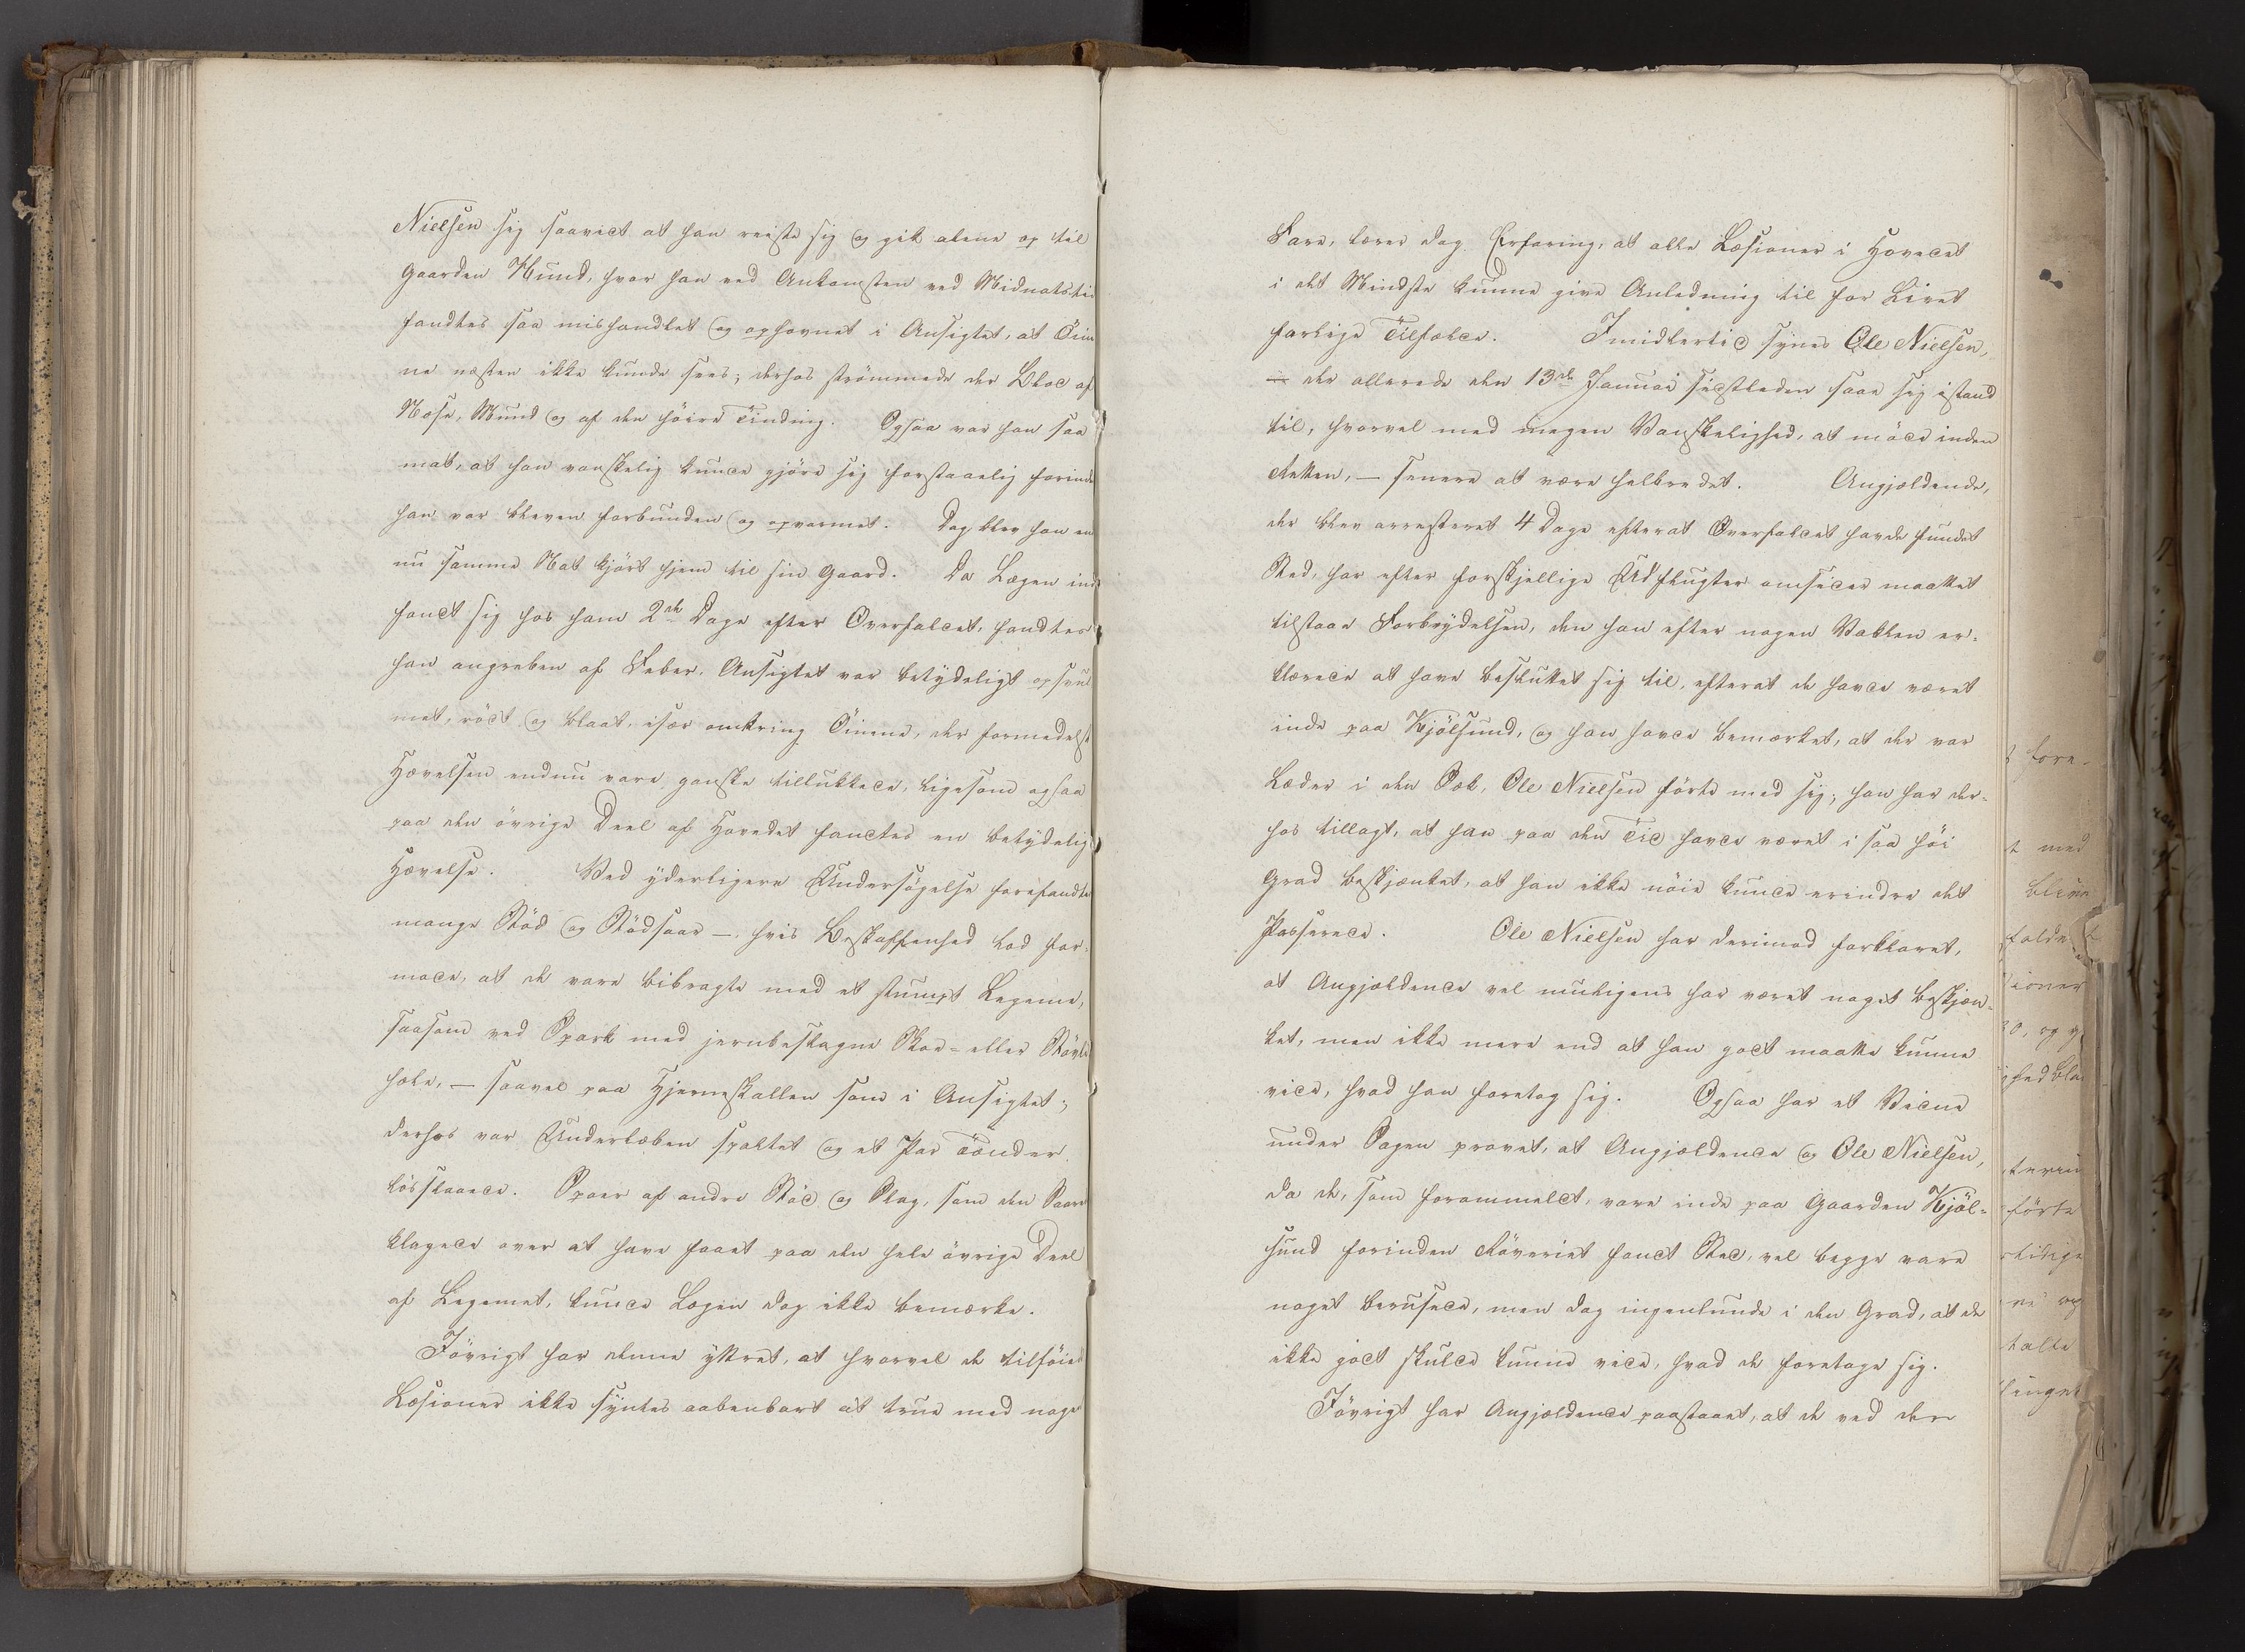 Nielsen sig saavidt at han reiste sig og gik alene op til
Gaarden Hund, hvor han ved Ankomsten ved Midnatstid
fandtes saa mishandlet og ophovnet i Ansigtet, at Öin
ne næsten ikke kunde sees; derhos strömmede der Blod af
Næse, Mund og af den höire Tinding. Ogsaa var han saa
mat, at han vanskelig kunde gjöre sig forstaaelig forinden
han var bleven forbunden og opvarmet. Dog blev han en
nu samme Nat kjört hjem til sin Gaard. Da Lægen ind
fandt sig hos ham 2de Dage efter Overfaldet, fandtes
han angreben af Feber, Ansigtet var betydeligt opsvul
met, rödt og blaat, især omkring Öinene, der formedelst
Hævelsen endnu vare ganske tillukkede, ligesom ogsaa
paa den övrige Deel af Hovedet fandtes en betydelig
Hævelse. Ved yderligere Undersögelse forefandtes
mange Stöd og Stödsaar —, hvis Beskaffenhed lod for-
mode, at de vare bibragte med et stumpt Legeme,
saasom ved Spark med jernbeslagne Skoe- eller Stövle
hæle, — saavel paa Hjerneskallen som i Ansigtet;
derhos var Underlæben spaltet og et Par Tænder
lösslaaede. Spoer af andre Stöd og Slag, som den Saarede
klagede over at have faaet paa den hele övrige Deel
af Legemet, kunde Lægen dog ikke bemærke.
Jövrigt har denne yttret, at hvorvel de tilföiede
Læsioner ikke syntes aabenbart at true med nogen
Fare, lærer dog Erfaring, at alle Læsioner i Hovedet
i det Mindste kunne give Anledning til for Livet
farlige Tilfælde. Imidlertid synes Ole Nielsen,
der allerede den 13de Januar sidstleden saae sig istand
til, hvorvel med megen Vanskelighed, at möde inden
Retten, — senere at være helbredet. Angjældende,
der blev arresteret 4 Dage efterat Overfaldet havde fundet
Sted, har efter forskjellige Udflugter omsider maattet
tilstaae Forbrydelsen, den han efter nogen Vaklen er-
klærede at have besluttet sig til, efterat de havde været
inde paa Kjölsund, og han havde bemærket, at der var
Læder i den Sæk, Ole Nielsen förte med sig; han har der-
hos tillagt, at han paa den Tid havde været i saa höi
Grad beskjænket, at han ikke nöie kunde erindre det
Passerede. Ole Nielsen har derimod forklaret,
at Angjældende vel muligens har været noget beskjæn-
ket, men ikke mere end at han godt maatte kunne
vide, hvad han foretog sig. Ogsaa har et Vidne
under Sagen provet, at Angjældende og Ole Nielsen,
da de, som forommeldt, vare inde paa Gaarden Kjöl-
sund forinden Röveriet fandt Sted, vel begge vare
noget berusede, men dog ingenlunde i den Grad, at de
ikke godt skulde kunne vide, hvad de foretoge sig.
Jövrigt har Angjældende paastaaet, at de ved den